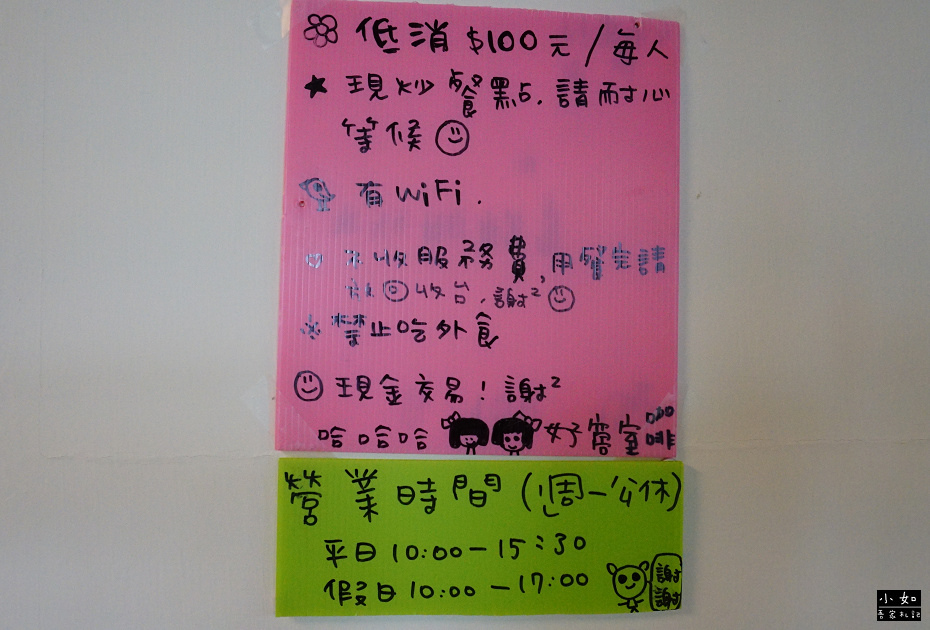 低消 $100元/每人
現炒餐點.請耐心
等候
有WiFi.
不收服務費,用餐完請
放回收台.謝²
禁止吃外食
現金交易!謝²
哈哈哈 好窩室咖啡
營業時間(週一公休)
平日10:00-15:30
假日10:00-17:00
謝謝
小如
吾家札記